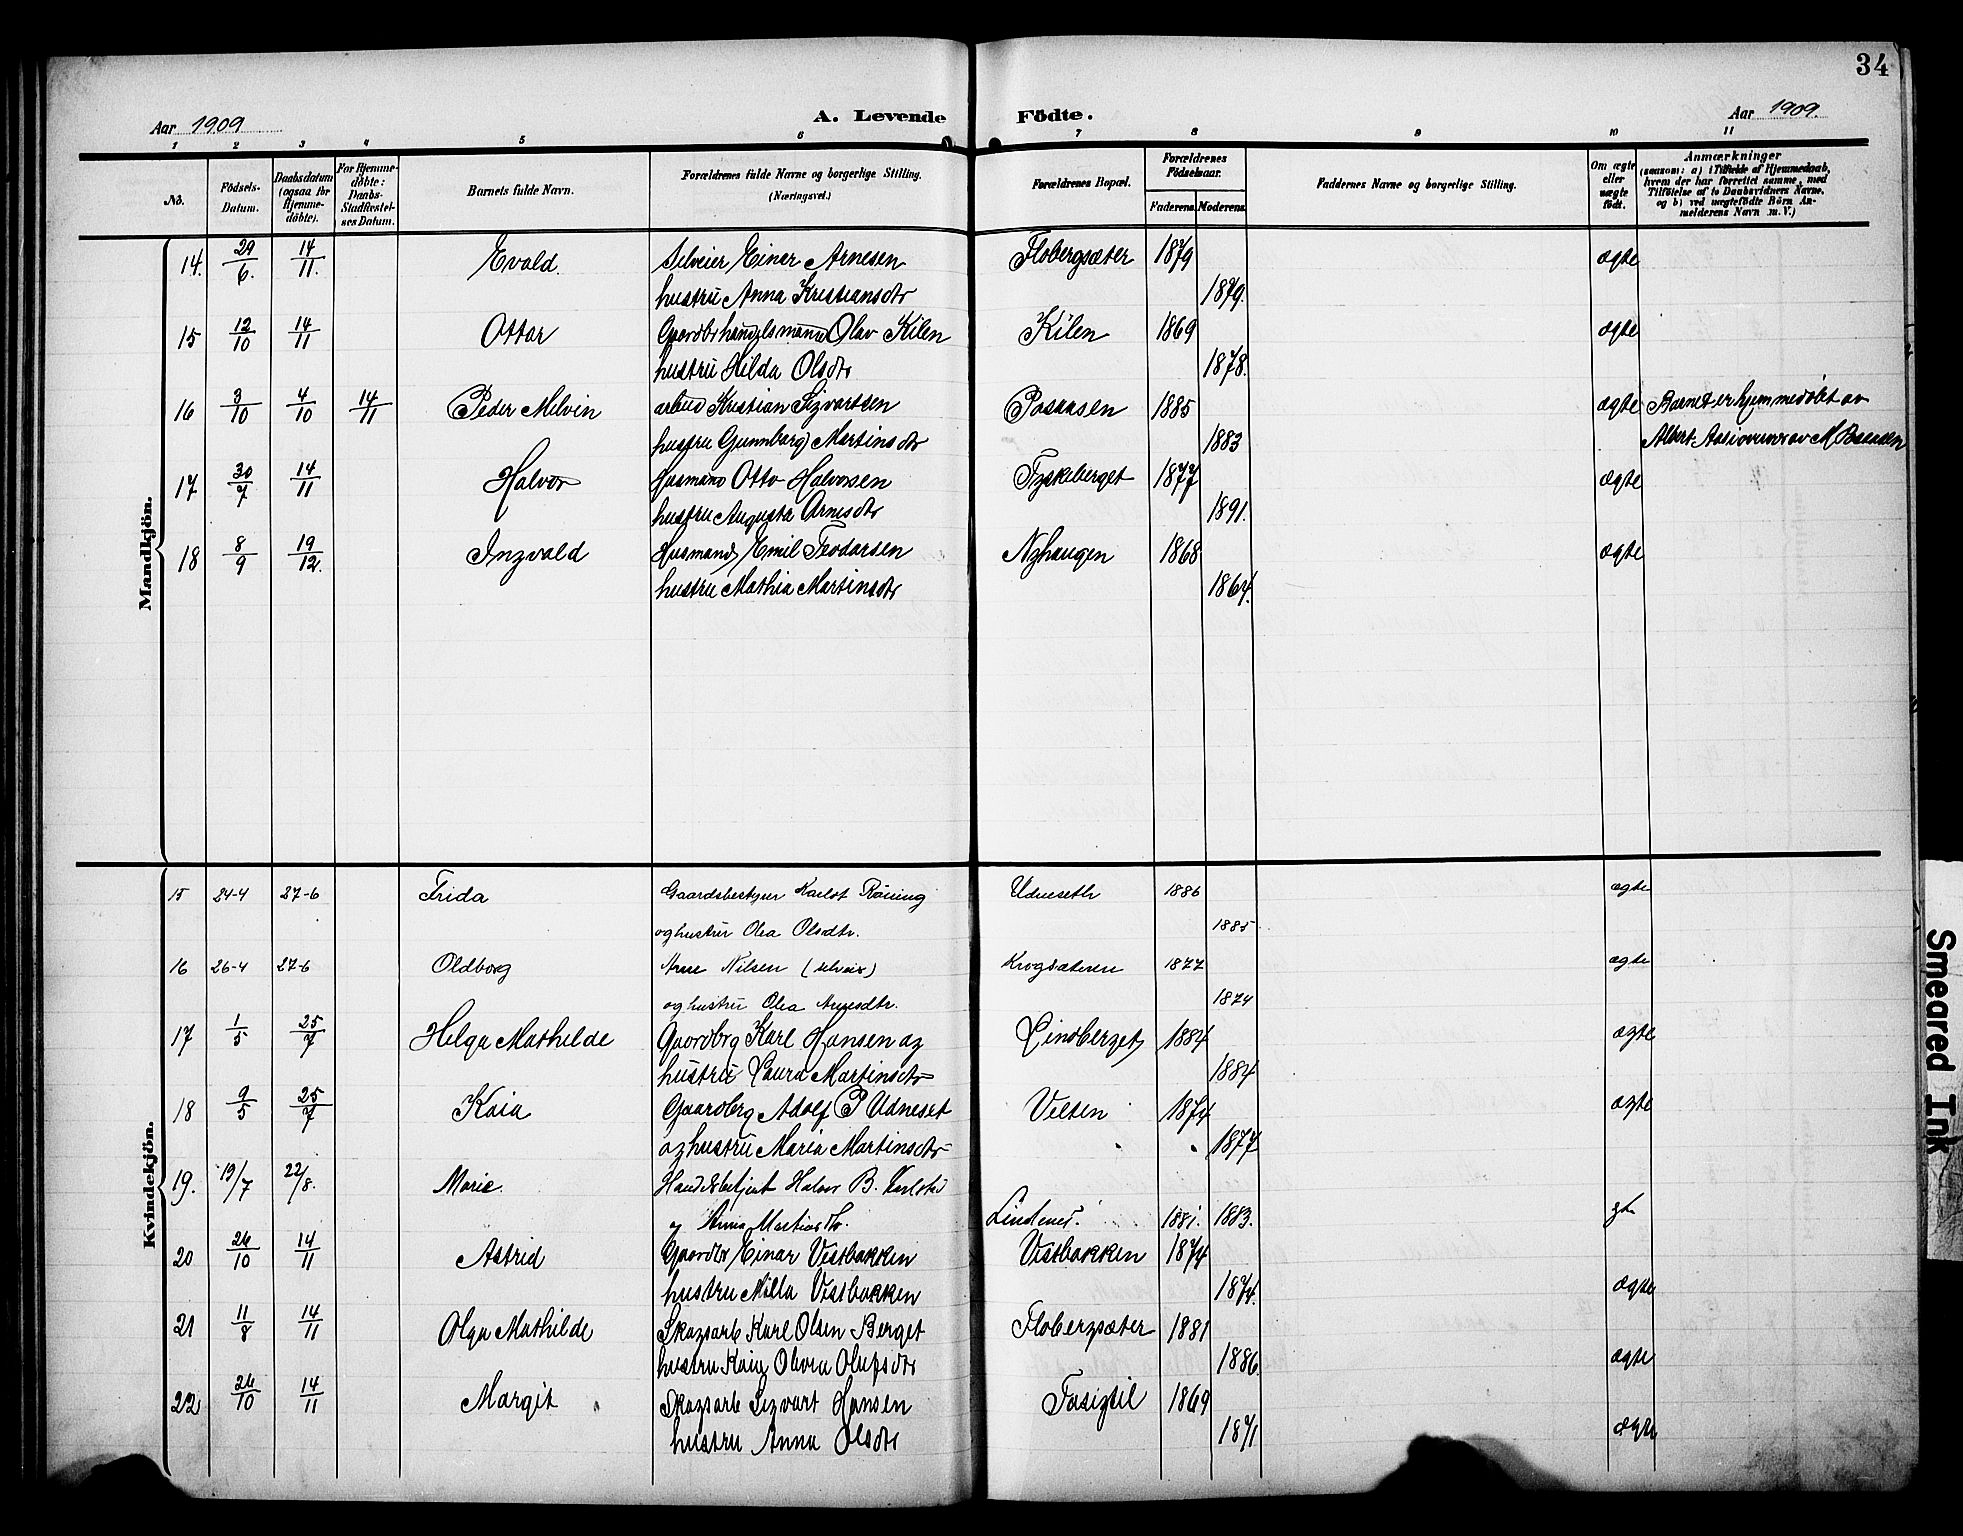 34
Aar 1909 A. Levende Födte. Aar 1909.
1 2 3 4 5 6 7 8 9 10 11
No. Födsels-Datum. Daabsdatum (ogsaa for Hjemmedöbte). For Hjemmedöbte: Daabs-Stadfæstelses Datum. Barnets fulde Navn. Forældrenes fulde Navne og borgerlige Stilling. (Næringsvei.) Forældrenes Bopæl. Forældrenes Födselsaar. Faderens Moderens Faddernes Navne og borgerlige Stilling. Om ægte eller uægte födt. Anmærkninger (saasom: a) i Tilfælde af Hjemmedaab, hvem der har forrettet samme, med Tilföielse af to Daabsvidners Navne, og b) ved uægtefödte Börn Anmelderens Navn m. V.)
Mandkjön.
14. 29/6. 14/11. Evald. Selveier Einer Arnesen Flobergsæter 1879 ægte
hustru Anna Kristiansdtr 1879.
15 12/10 14/11 Ottar Gaardbr handelsmann Olav Kilen Kilen 1869 ægte
hustru Hilda Olsdtr 1878.
16 3/10 4/10 14/11 Peder Melvin arbeid Kristian Sigvartsen Posaasen 1885 ægte Barnet er hjemmedøbt av
hustru Gunnborg Martinsdtr 1883 Albert
17 30/7 14/11 Halvor Husmand Otto Halvorsen Fyskeberget 1877 ægte
hustru Augusta Arnesdtr 1891.
18 8/9 19/12. Ingvald Husmand Emil Teodorsen Nyhaugen 1868 ægte
hustru Mathia Martinsdtr 1864.
Kvindekjön.
15 24-4 27-6 Frida Gaardsbestyrer Karlot Röining Udneseth 1886 ægte
og hustru Olea Olsdtr. 1885.
16 26-4 27-6 Oldborg Arne Nilsen (selveier) Krogsæteren 1877 ægte
og hustru Olea Arnesdtr. 1874
17 1/5 25/7 Helga Mathilde Gaardbrg Karl Hansen og Lindberget 1884 ægte
hustru Laura Martinsdtr 1884
18 9/5 25/7 Kaia Gaardbrg Adolf P Udneset Velten 1874 ægte
og hustru Maria Martinsdtr 1877
19. 19/7 22/8. Marie. Handelsbetjent Halvor B. Karlstad
og Anna Martinsdtr. Lindnes. 1881. 1883. gte
20 26/10 14/11 Astrid Gaardbr Einar Vestbakken Vestbakken 1874
hustru Milla Vestbakken 1874. ægte
21 11/8 14/11 Olga Mathilde Skogsarb Karl Olsen Berget Flobergsæter 1881
hustru Kaia Olevra Olufsdtr 1886. ægte
22 26/10 14/11 Margit Skogsarb Sigvart Hansen Fosigtil 1869
hustru Anna Olsdtr 1871 ægte
Smeared Ink